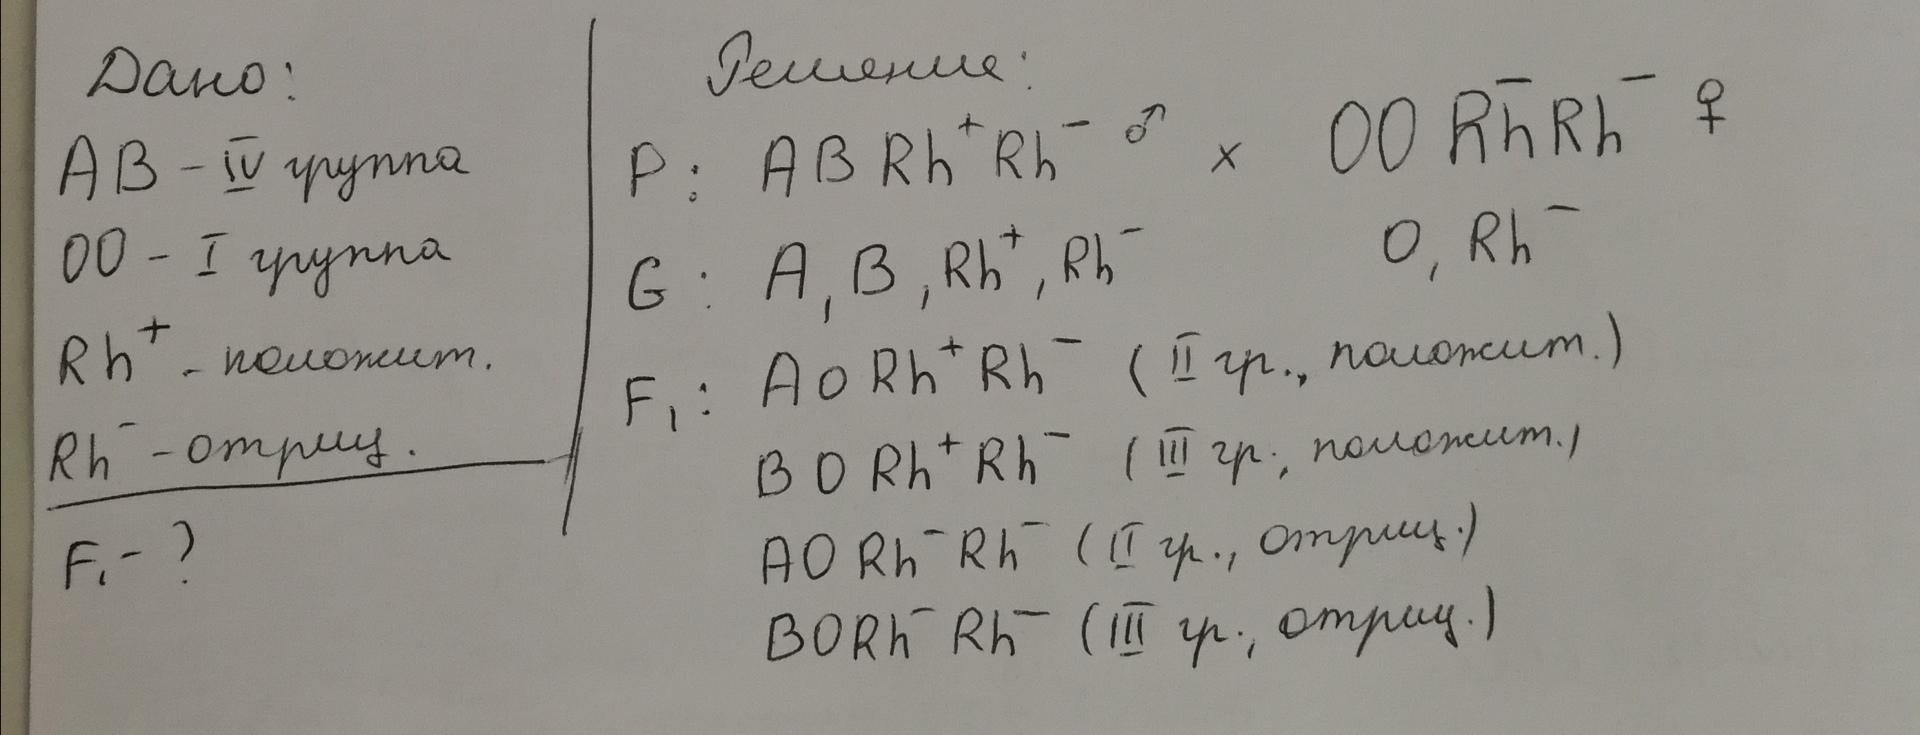 Дано:
AB - IV группа
OO - I группа
Rh⁺ - положит.
Rh⁻ - отриц.
F₁ - ?
Решение:
P: AB Rh⁺Rh⁻ ♂ x OO Rh⁻Rh⁻ ♀
G: A, B, Rh⁺, Rh⁻ O, Rh⁻
F₁: AO Rh⁺Rh⁻ (II гр., положит.)
BO Rh⁺Rh⁻ (III гр., положит.)
AO Rh⁻Rh⁻ (II гр., отриц.)
BO Rh⁻Rh⁻ (III гр., отриц.)